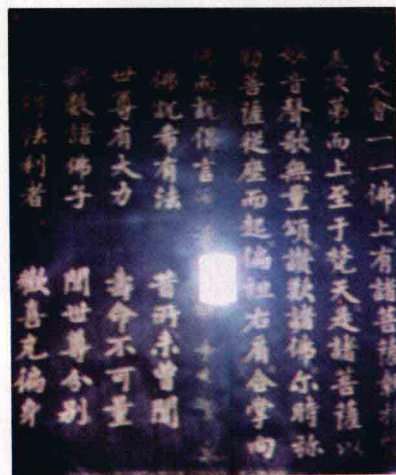 養大會一一佛上有諸菩薩執
盖次第而上至于梵天是諸菩薩以
妙音聲歌無量頌讃歎諸佛尒時弥
勒菩薩從座而起偏袒右肩合掌向
佛而說偈言
佛說希有法 昔所未曾聞
世尊有大力 壽命不可量
數諸佛子 聞世尊分別
得法利者 歡喜充徧身